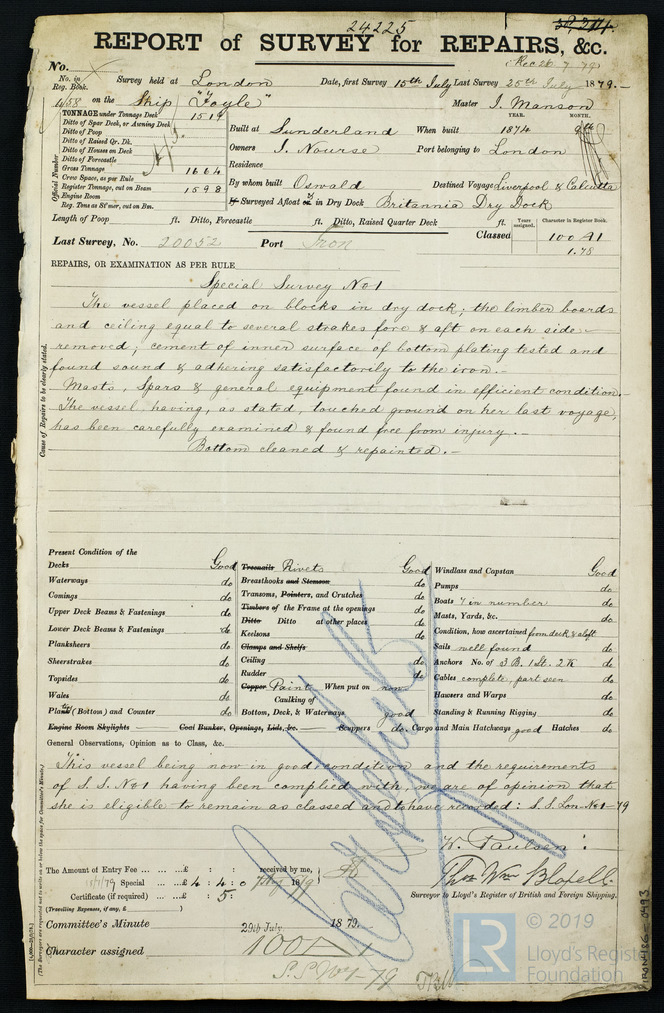 24225
REPORT of SURVEY for REPAIRS, &c.
Rec 26 7 79
No.
No. in Reg. Book.
Survey held at London Date, first Survey 15th July Last Survey 25th July 1879.
458 on the Ship "Foyle" Master I. Manson
TONNAGE under Tonnage Deck 1519
Ditto of Spar Deck, or Awning Deck
Ditto of Poop
Ditto of Raised Qr. Dk.
Ditto of Houses on Deck
Ditto of Forecastle
Gross Tonnage 1664
Crew Space, as per Rule
Register Tonnage, cut on Beam 1598
Engine Room
Reg. Tons as St'mer, cut on Bm.
Official Number
YEAR. MONTH.
Built at Sunderland When built 1874 9th
Owners I. Nourse Port belonging to London
Residence
By whom built Oswald Destined Voyage Liverpool & Calcutta
If Surveyed Afloat or in Dry Dock Britannia Dry Dock
Length of Poop ft. Ditto, Forecastle ft. Ditto, Raised Quarter Deck ft.
Years assigned. Character in Register Book.
Last Survey, No. 20052 Port Iron Classed 100 A1
1.78
REPAIRS, OR EXAMINATION AS PER RULE
Cause of Repairs to be clearly stated.
Special Survey No 1
The vessel placed on blocks in dry dock; the limber boards
and ceiling equal to several strakes fore & aft on each side
removed; cement of inner surface of bottom plating tested and
found sound & adhering satisfactorily to the iron.
Masts, Spars & general equipment found in efficient condition.
The vessel, having, as stated, touched ground on her last voyage,
has been carefully examined & found free from injury.
Bottom cleaned & repainted.
Present Condition of the
Decks Good
Waterways do
Comings do
Upper Deck Beams & Fastenings do
Lower Deck Beams & Fastenings do
Planksheers do
Sheerstrakes do
Topsides do
Wales do
Plank (Bottom) and Counter do
Engine Room Skylights
Treenails Rivets Good
Breasthooks and Stemson do
Transoms, Pointers, and Crutches do
Timbers of the Frame at the openings do
Ditto Ditto at other places do
Keelsons do
Clamps and Shelfs
Ceiling do
Rudder do
Copper Paint When put on now
Caulking of
Bottom, Deck, & Waterways good
Coal Bunker, Openings, Lids, &c. Scuppers do.
Windlass and Capstan Good
Pumps do
Boats 7 in number do
Masts, Yards, &c. do
Condition, how ascertained from deck & aloft
Sails well found do
Anchors No. of 3 B. 1 St. 2 K do
Cables complete, part seen do
Hawsers and Warps do
Standing & Running Rigging do
Cargo and Main Hatchways good Hatches do
General Observations, Opinion as to Class, &c.
This vessel being now in good condition and the requirements
of S. S. No 1 having been complied with, we are of opinion that
she is eligible to remain as classed and to have recorded: S. S. Lon. No 1-79
W. Paulsen
The Amount of Entry Fee ... £ : : received by me,
Special ... £ 4 : 4 : 0 1879
Certificate (if required) ... £ : 5 :
(Travelling Expenses, if any, £ )
Thos Wm Bloxell.
Surveyor to Lloyd's Register of British and Foreign Shipping.
Committee's Minute 29th July. 1879.
Character assigned 100 A 1
(The Surveyors are requested not to write on or below the space for Committee's Minute.)
© 2019
LR
Lloyd's Register
Foundation
IRON 186-0493